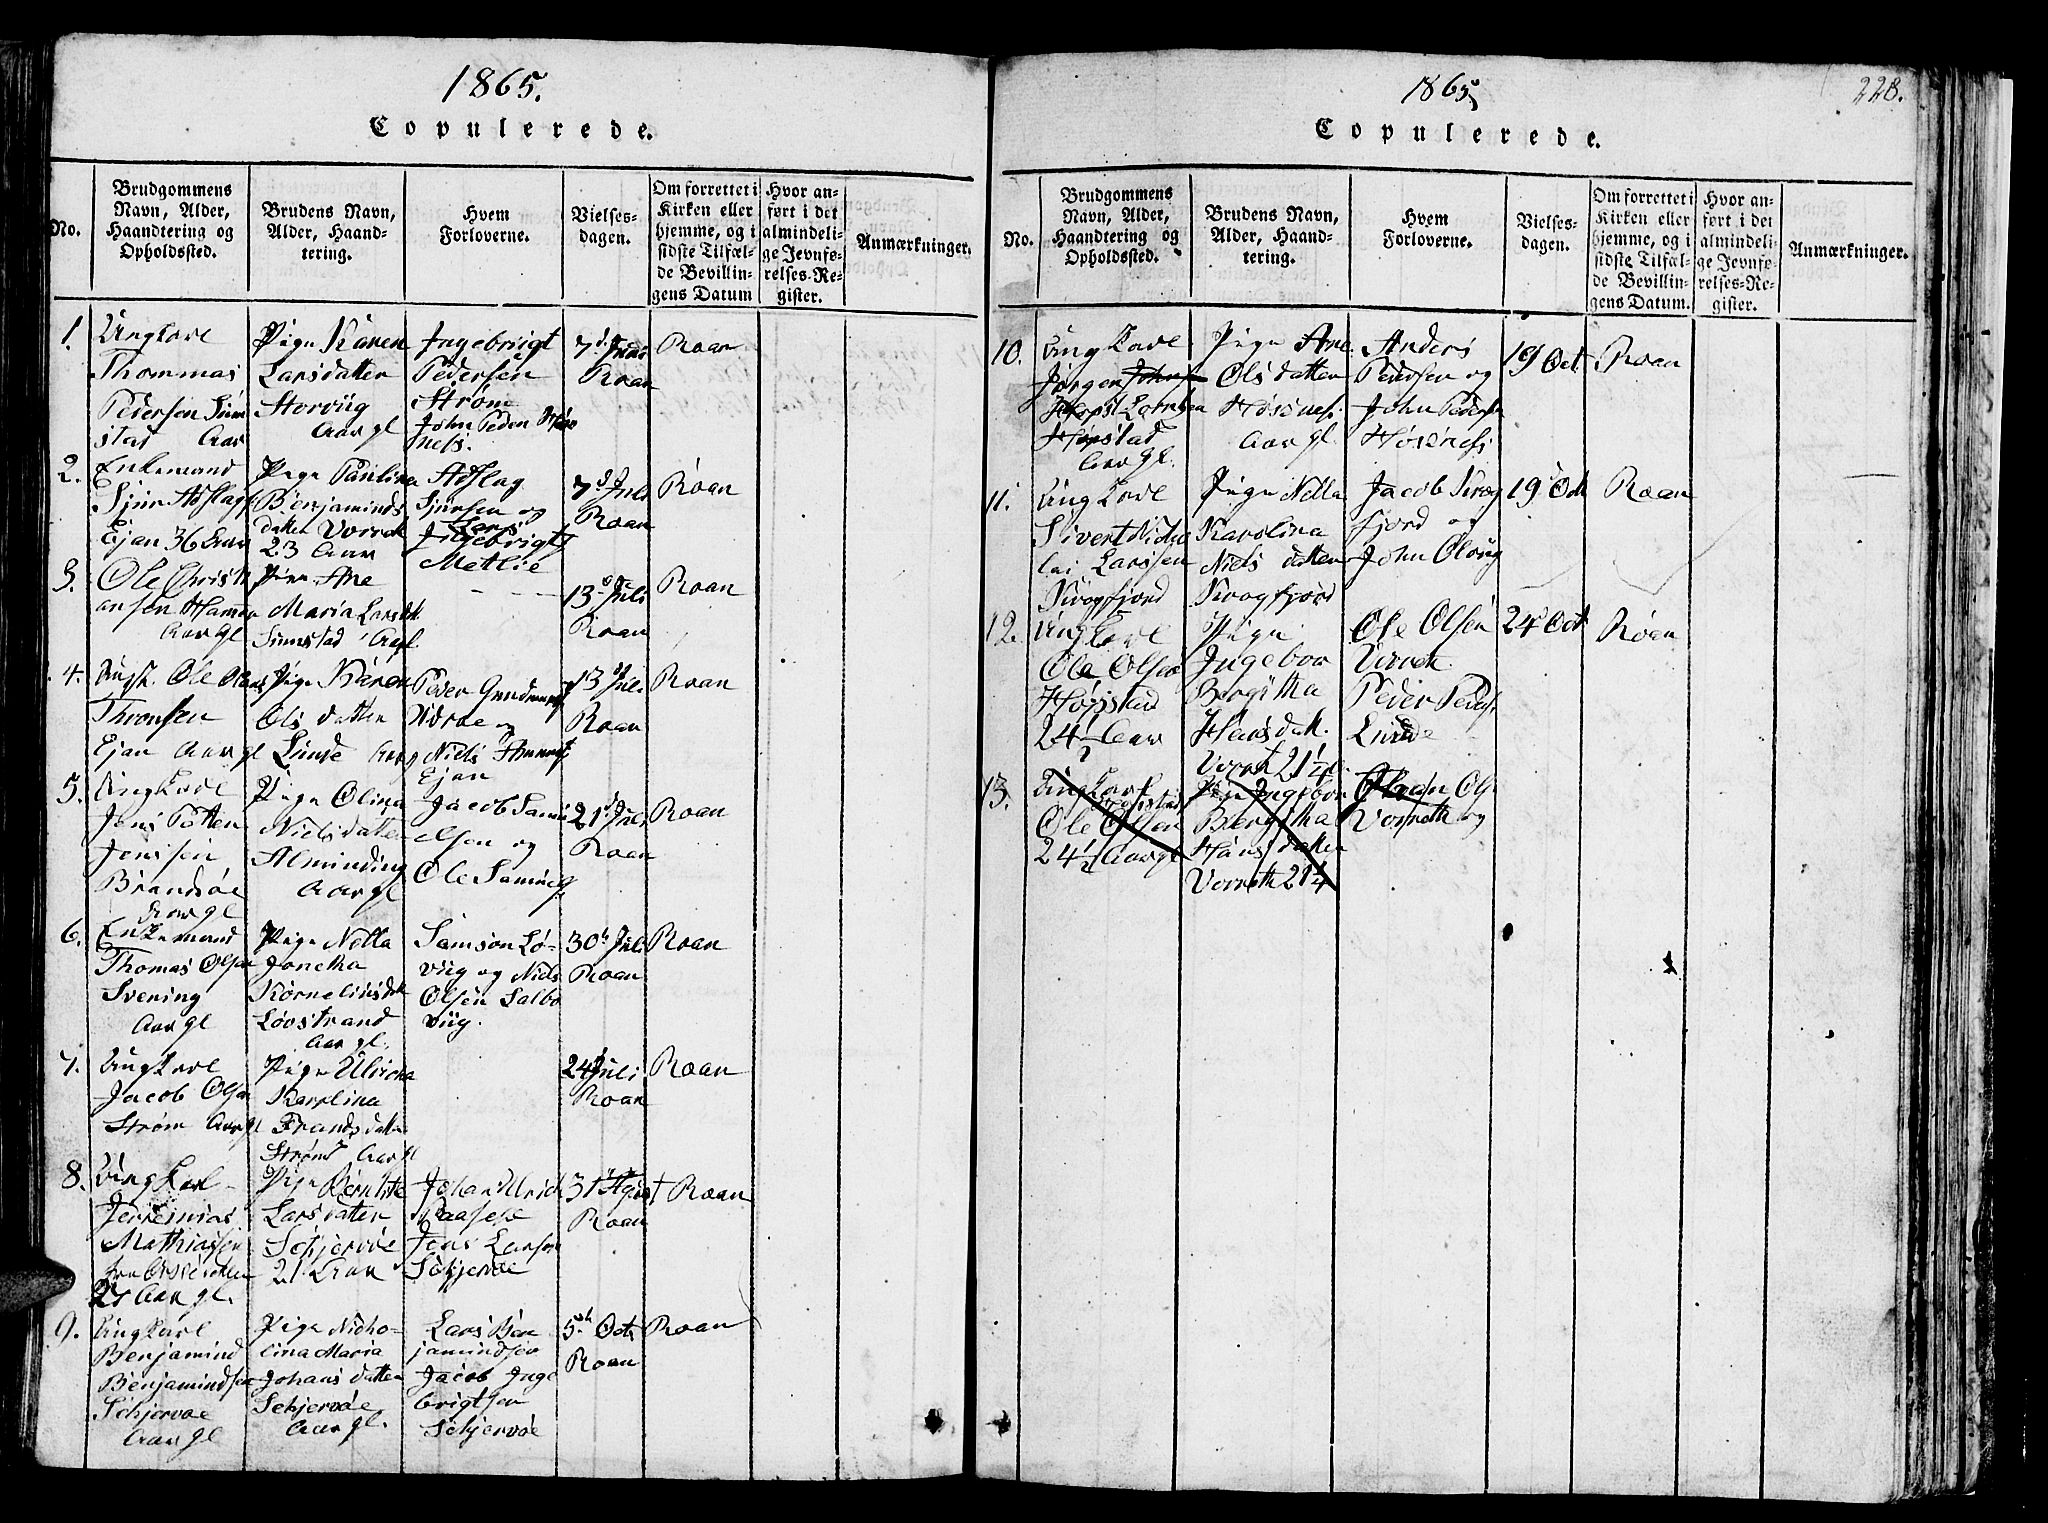 1865.
Copulerede.
No.
Brudgommens
Navn, Alder,
Haandtering og
Opholdssted.
Brudens Navn,
Alder, Haand-
tering.
Hvem
Forloverne.
Vielses-
dagen.
Om forrettet i
Kirken eller
hjemme, og i
sidste Tilfæl-
de Bevillin-
gens Datum
Hvor an-
ført i det
almindeli-
ge Jevnfø-
relses-Re-
gister.
Anmærkninger.
1.
Ungkarl
Thommas
Pedersen
Aar
Pige Karen
Larsdatter
Storviig
Aar gl
Ingebrigt
Pedersen
Strøm
John Peder
ness.
7d Juli
Roan
Roan
2.
Enkemand
Sjur
Ejan 36 Aar
Pige Paulina
Benjaminds
datter Vorrat
23 Aar
Aslag
Sjursen og
Lars
Ingebrigts
Metlie
7d Juli
Roan
Roan
3.
Ole Christi
ansen
Aar gl
Pige Ane
Maria Larsdt
Sumstad Aar gl.
13d Juli
Roan
Roan
4.
Ungk. Ole
Thronsen
Ejan Aar gl
Pige Karen
Ols datter
Lunde Aar g
Peder
og
Niels
Ejan
13d Juli
Roan
Roan
5.
Ungkarl
Jens Petter
Jenssen
Brandsøe
Aar gl
Pige Olina
Nielsdatter
Alminding
Aar gl
Jacob Samu
elsen og
Ole Samuels
21d Juli
Roan
Roan
6.
Enkemand
Thomas Olsen
Svening
Aar gl
Pige Nella
Jonetha
Kornelius dat
Løvstrand
Aar gl.
Samson Lø-
viig og Niels
Olsen Salbo
viig.
30d Juli
Roan
Roan
7.
Ungkarl
Jacob Olsen
Strøm Aar gl
Pige Ulricka
Karolina
Frandsdatter
Strømd Aar gl
24 Juli
Roan
Roan
8.
Ungkarl
Jerremias
Mathiassen
27 Aar gl.
Pige Berntite
Larsdatter
Schjervøe
21 Aar
Johan Ulrich
Jens Larsen
Schjervøe
31t Agust
Roan
Roan
9.
Ungkarl
Benjamind
Benjamindsen
Schjervøe
Aar gl
Pige Nicho-
lina Maria
Johans datter
Schjervøe
Aar gl.
Lars Ben
jamindsen
Jacob Inge
brigtsen
Schjervøe
5th Oct
Roan
Roan
1865
228.
Copulerede.
No.
Brudgommens
Navn, Alder,
Haandtering og
Opholdssted.
Brudens Navn,
Alder, Haand-
tering.
Hvem
Forloverne.
Vielses-
dagen.
Om forrettet i
Kirken eller
hjemme, og i
sidste Tilfæl-
de Bevillin-
gens Datum.
Hvor an-
ført i det
almindeli-
ge Jevnfø-
relses-Re-
gister.
Anmærkninger.
10.
Ung Karl
Jørgen
Larssen
Hopstad
Aar gl.
Pige Ane
Olsdatter
Hosønes.
Aar gl.
Anders
Pedersen og
John Peders
Hosønes
19 Oct
Roan
11.
Ung Karl
Sivert Nicho
lai Larssen
Skrogfjord
Pige Nella
Karolina
Niels datter
Skrogfjord
Jacob Skrog
fjord og
John
19 Oct
Roan
12.
Ungkarl
Ole Olsen
Hopstad
24½ Aar
Pige
Ingebor
Bergitha
Hans dat.
Vorrat 21¼
Ole Olsen
Vorrat.
Peder Peders.
Lunde
24 Oct
Roan
13.
Ungkarl
Hopstad
Ole Olsen
24½ Aar gl
Pige Ingebor
Bergitha
Hans datter
Vorrath 21¼
Ols
Vorrath og